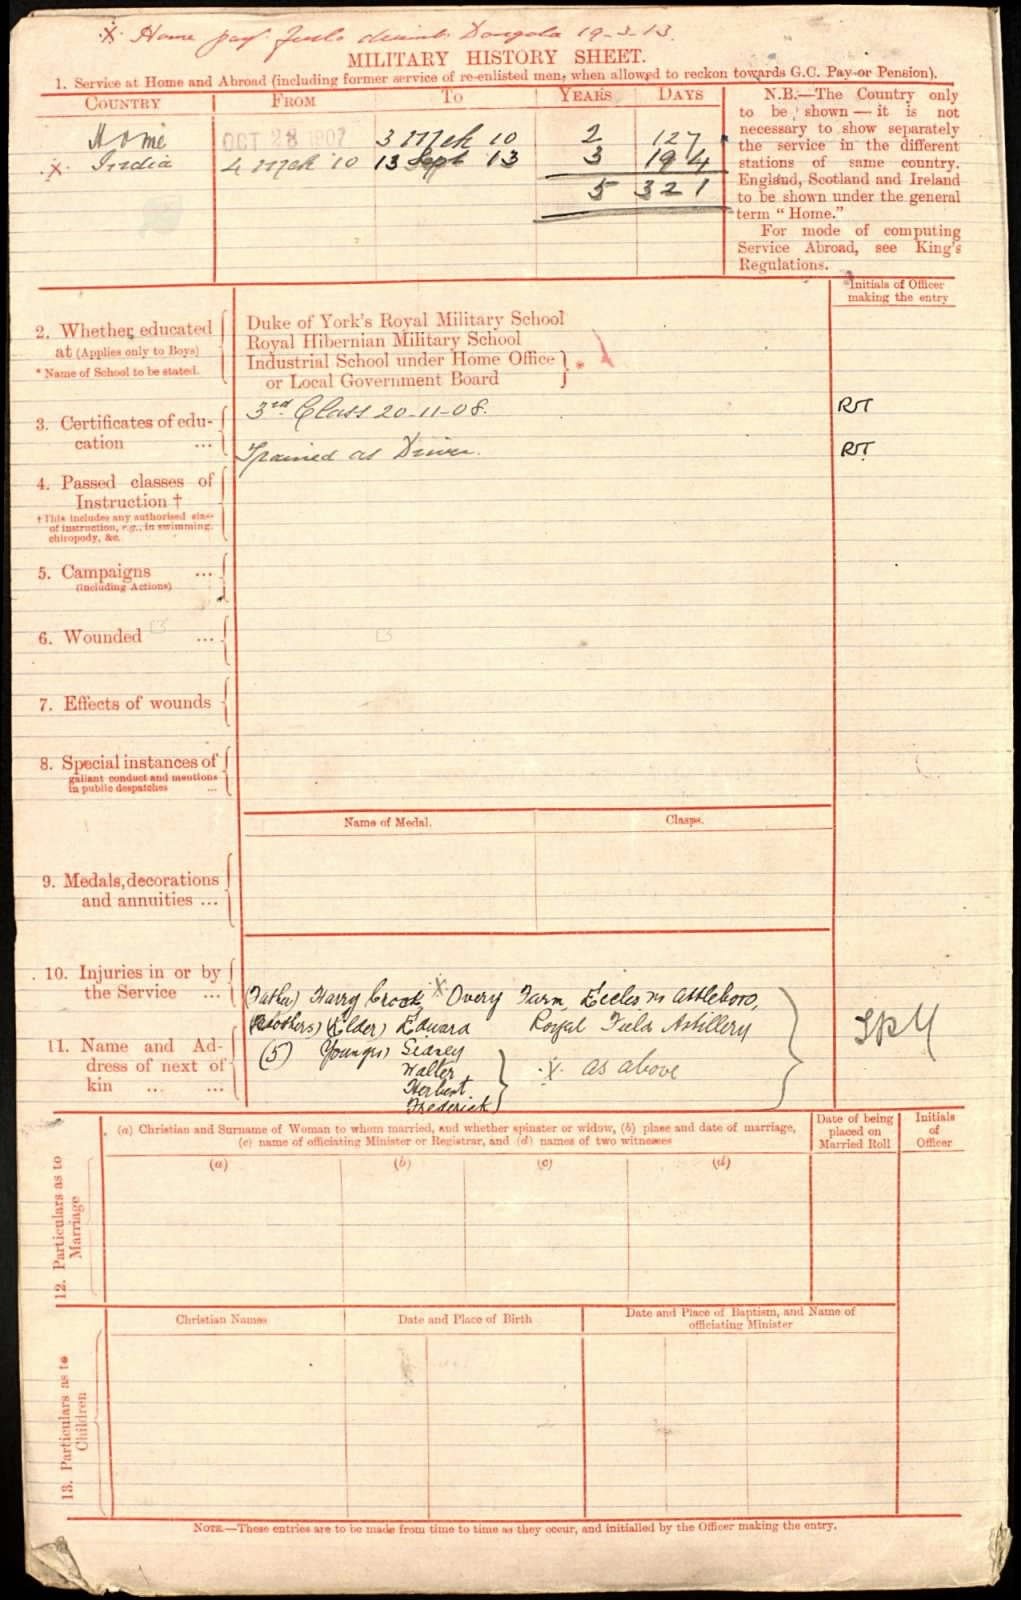 .X. Home pay 19-3-13.
MILITARY HISTORY SHEET.
1. Service at Home and Abroad (including former service of re-enlisted men, when allowed to reckon towards G.C. Pay or Pension).
COUNTRY FROM TO YEARS DAYS
Home OCT 28 1907 3 Mch 10 2 127
.X. India 4 Mch 10 13 Sept 13 3 194
5 321
N.B.—The Country only
to be shown — it is not
necessary to show separately
the service in the different
stations of same country.
England, Scotland and Ireland
to be shown under the general
term "Home."
For mode of computing
Service Abroad, see King's
Regulations.
Initials of Officer
making the entry
2. Whether educated
at (Applies only to Boys)
* Name of School to be stated.
Duke of York's Royal Military School
Royal Hibernian Military School
Industrial School under Home Office
or Local Government Board } *
3. Certificates of edu-
cation ...
3rd Class 20-11-08. RT
Trained as Driver. RT
4. Passed classes of
Instruction †
† This includes any authorised class
of instruction, e.g., in swimming,
chiropody, &c.
5. Campaigns ...
(including Actions)
6. Wounded ...
7. Effects of wounds
8. Special instances of
gallant conduct and mentions
in public despatches ...
Name of Medal. Clasps.
9. Medals, decorations
and annuities ...
10. Injuries in or by
the Service ...
11. Name and Ad-
dress of next of
kin ... ...
(Father) Harry Crook X Overy Farm, Eccles Nr Attleboro,
(Brothers) (Elder) Edward Royal Field Artillery
(5) Younger) Sidney
Walter .X. as above
Herbert
Frederick
12. Particulars as to
Marriage
(a) Christian and Surname of Woman to whom married, and whether spinster or widow, (b) place and date of marriage,
(c) name of officiating Minister or Registrar, and (d) names of two witnesses
Date of being
placed on
Married Roll
Initials
of
Officer
(a) (b) (c) (d)
13. Particulars as to
Children
Christian Names Date and Place of Birth Date and Place of Baptism, and Name of
officiating Minister
NOTE.—These entries are to be made from time to time as they occur, and initialled by the Officer making the entry.